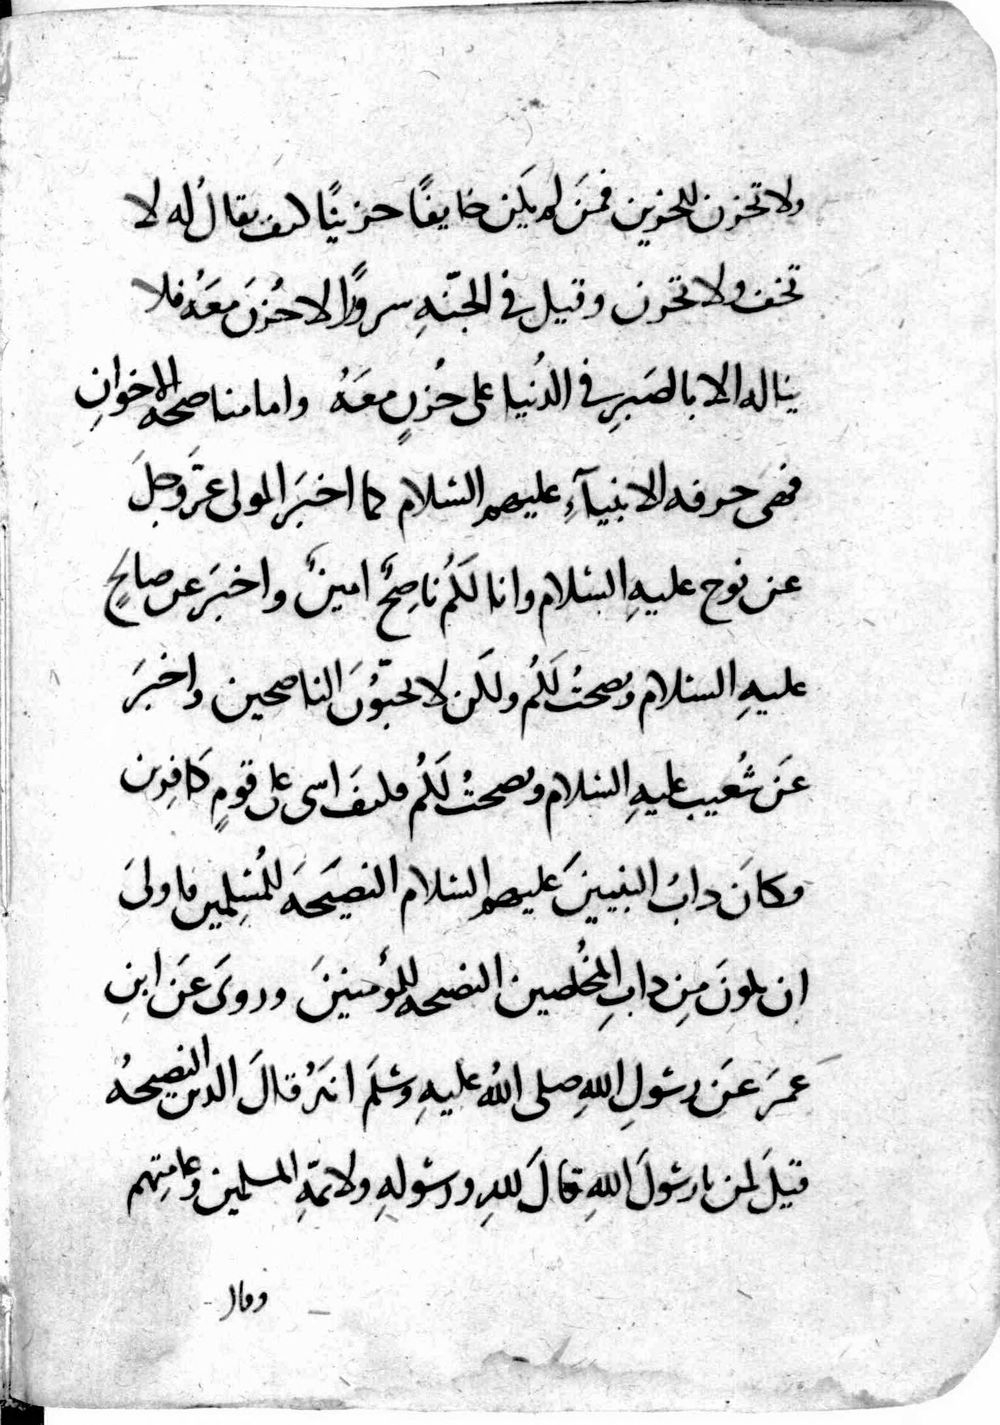 ولا تحزن للحزين فمن لم يكن خايفًا حزينًا كيف يقالُ له لا
تخف ولا تحزن وقيل في الجنّهِ سرورًا لا حُزنَ معَهُ فلا
يناله الا بالصَبرِ في الدُنيا على حُزنٍ معَهُ واما مناصحه الاخوانِ
فهى حرفه الانبيآءِ عليهم السّلام كما اخبَر المولى عزَّ وجلَ
عن نوح عليهِ السّلام وانا لكُم ناصِحٌ امينٌ واخبَر عن صالحٍ
عليهِ السلام ونصحتُ لكُم ولكن لا تحبّوُنَ الناصحين واخبَر
عَن شُعيب عليهِ السّلام ونصحتُ لكُم فكيفَ اسى على قومٍ كافِرين
وكانَ دابُ النبيينَ عليهم السّلام النصيَحَه للمُسلِمين فاولىَ
ان يكونَ مِن دابِ المُخلصين النصيحه للمؤمنينَ وروىَ عَن ابنِ
عمَرَ عَن رسُولِ اللهِ صلى اللهُ عليهِ وسَلَم انهُ قالَ الدين النصيحهُ
قيلَ لمن يا رسُولَ اللهِ قالَ للهِ ورسُولهِ ولائمّهِ المسلمين وعامتِهم
وقال